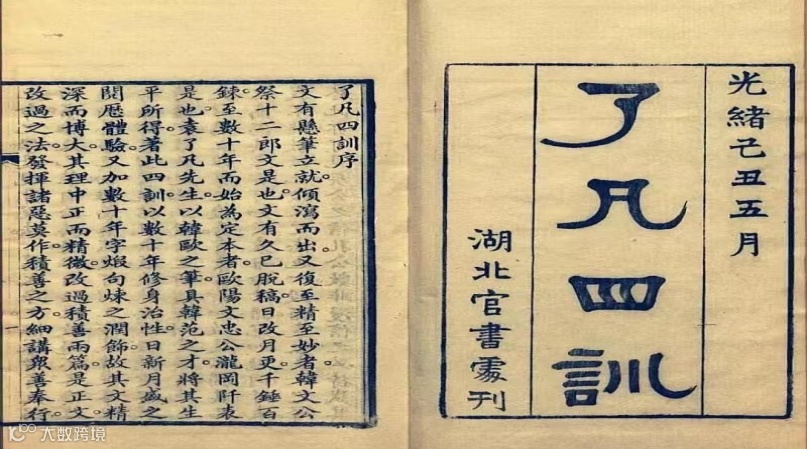 光緒己丑五月
了凡四訓
湖北官書處刊
了凡四訓序
文有懸筆立就。傾瀉而出。又復至精至妙者。韓文公
祭十二郎文是也。文有久已脫稿。日改月更。千錘百
鍊。至數十年而始為定本者。歐陽文忠公瀧岡阡表
是也。袁了凡先生。以韓歐之筆。具韓范之才。將其生
平所得。著此四訓。以數十年修身治性。日新月盛之
閱歷體驗。又加數十年字煅句煉之潤飾。故其文精
深而博大。其理中正而精微。改過積善兩篇。是正文。
改過之法。發揮諸惡莫作。積善之方。細講眾善奉行。
一
大数跨境